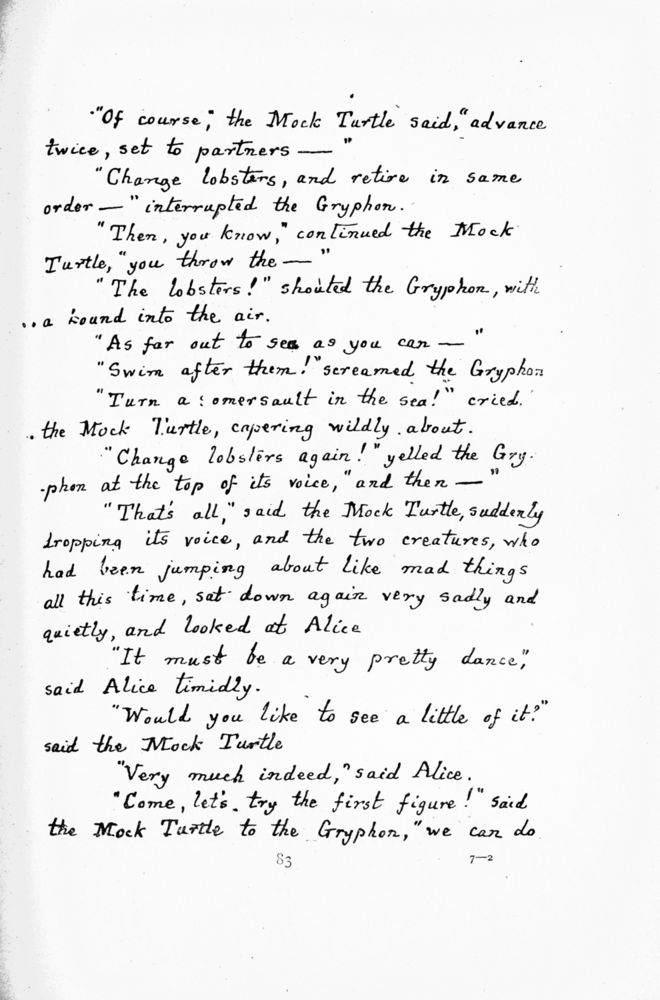 "Of course," the Mock Turtle said, "advance
twice, set to partners — "
"Change lobsters, and retire in same
order — " interrupted the Gryphon.
"Then, you know," continued the Mock
Turtle, "you throw the — "
"The lobsters!" shouted the Gryphon, with
a bound into the air.
"As far out to sea as you can — "
"Swim after them!" screamed the Gryphon
"Turn a somersault in the sea!" cried
the Mock Turtle, capering wildly about.
"Change lobsters again!" yelled the Gry-
-phon at the top of its voice, "and then — "
"That's all," said the Mock Turtle, suddenly
dropping its voice, and the two creatures, who
had been jumping about like mad things
all this time, sat down again very sadly and
quietly, and looked at Alice
"It must be a very pretty dance,"
said Alice timidly.
"Would you like to see a little of it?"
said the Mock Turtle
"Very much indeed," said Alice.
"Come, let's try the first figure!" said
the Mock Turtle to the Gryphon, "we can do
83
7—2